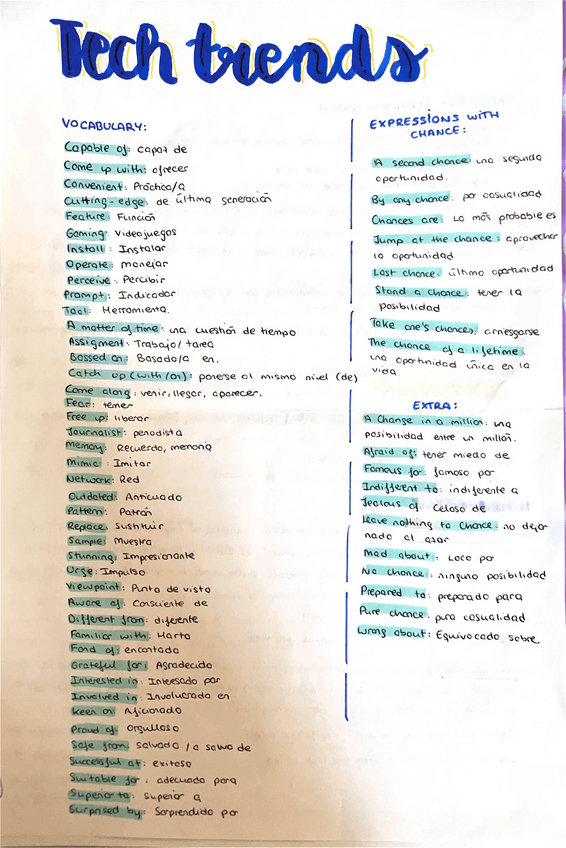 Tech trends
VOCABULARY:
Capable of: capaz de
Come up with: ofrecer
Convenient: Práctico/a
Cutting-edge: de última generación
Feature: Función
Gaming: Videojuegos
Install: Instalar
Operate: manejar
Perceive: Percibir
Prompt: Indicador
Tool: Herramienta.
A matter of time: una cuestión de tiempo
Assigment: Trabajo/tarea
Bassed on: Basado/a en.
Catch up (with/on): ponerse al mismo nivel (de)
Come along: venir, llegar, aparecer.
Fear: temer
Free up: liberar
Journalist: periodista
Memory: Recuerdo, memoria
Mimic: Imitar
Network: Red
Outdated: Anticuado
Pattern: Patrón
Replace: Sustituir
Sample: Muestra
Stunning: Impresionante
Urge: Impulso
Viewpoint: Punto de vista
Aware of: Consciente de
Different from: diferente
Familiar with: Harto
Fond of: encantado
Grateful for: Agradecido
Interested in: Interesado por
Involved in: Involucrado en
Keen on: Aficionado
Proud of: orgulloso
Safe from: salvado /a salvo de
Successful at: exitoso
Suitable for: adecuado para
Superior to: Superior a
Surprised by: Sorprendido por
EXPRESSIONS WITH
CHANCE:
A second chance: una segunda
oportunidad.
By any chance: por casualidad
Chances are: Lo más probable es
Jump at the chance: aprovechar
la oportunidad
Last chance: última oportunidad
Stand a chance: tener la
posibilidad
Take one's chances: arriesgarse
The chance of a lifetime:
una oportunidad única en la
vida
EXTRA:
A Change in a million: una
posibilidad entre un millón.
Afraid of: tener miedo de
Famous for: famoso por
Indifferent to: indiferente a
Jealous of: Celoso de
Leave nothing to Chance: no dejar
nada al azar
Mad about: Loco por
No chance: ninguna posibilidad
Prepared to: preparado para
Pure chance: pura casualidad
Wrong about: Equivocado sobre.